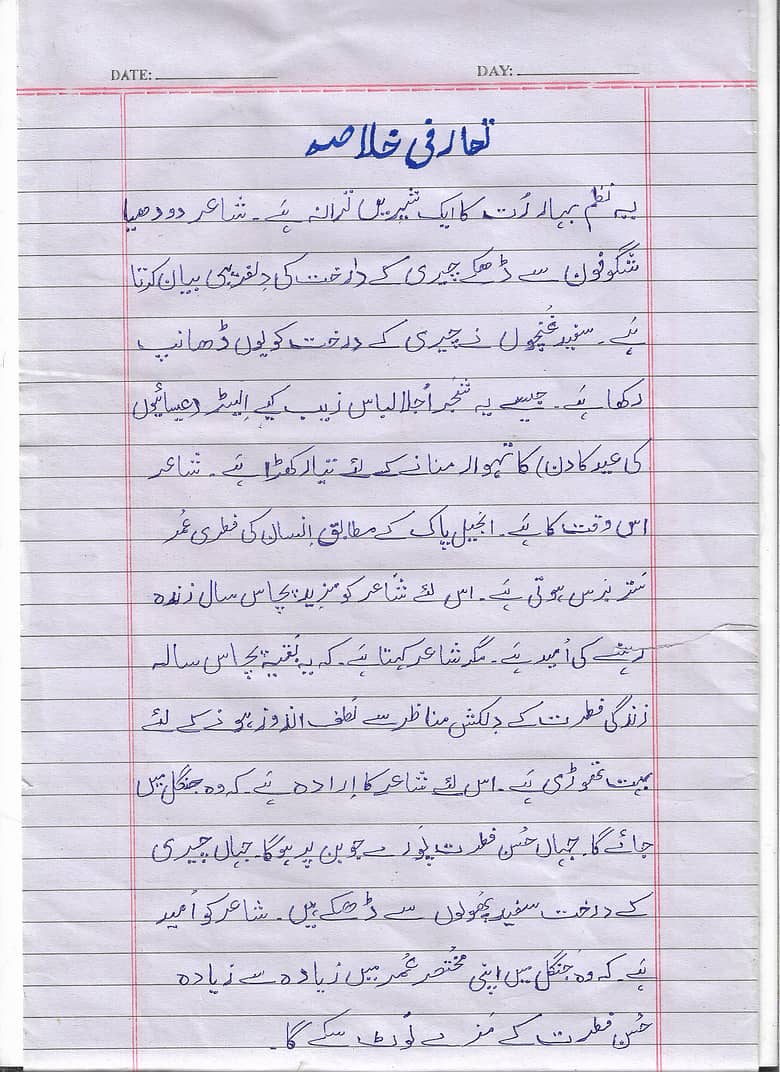 DATE: DAY:
تعارفی خلاصہ
یہ نظم بہار رُت کا ایک شیریں ترانہ ہے۔ شاعر دودھیا
شگوفوں سے ڈھکے چیری کے درخت کی دِلفریبی بیان کرتا
ہے۔ سفید غُنچوں نے چیری کے درخت کو یوں ڈھانپ
رکھا ہے۔ جیسے یہ شجر اُجلا لباس زیب کیے ایسٹر (عیسائیوں
کی عید کا دن) کا تہوار منانے کے لئے تیار کھڑا ہے۔ شاعر
اس وقت کا ہے۔ انجیل پاک کے مطابق اِنسان کی فطری عُمر
ستر برس ہوتی ہے۔ اس لئے شاعر کو مزید پچاس سال زندہ
رہنے کی اُمید ہے۔ مگر شاعر کہتا ہے۔ کہ یہ بقیۃ پچاس سالہ
زندگی فطرت کے دِلکش مناظر سے لُطف اندوز ہونے کے لئے
بہت تھوڑی ہے۔ اس لئے شاعر کا اِرادہ ہے۔ کہ وہ جنگل میں
جائے گا۔ جہاں حُسن فطرت پُورے جوبن پر ہوگا۔ جہاں چیری
کے درخت سفید پھُولوں سے ڈھکے ہیں۔ شاعر کو اُمید
ہے۔ کہ وہ جنگل میں اپنی مُختصر عُمر میں زیادہ سے زیادہ
حُسن فطرت کے مزے لُوٹ سکے گا۔